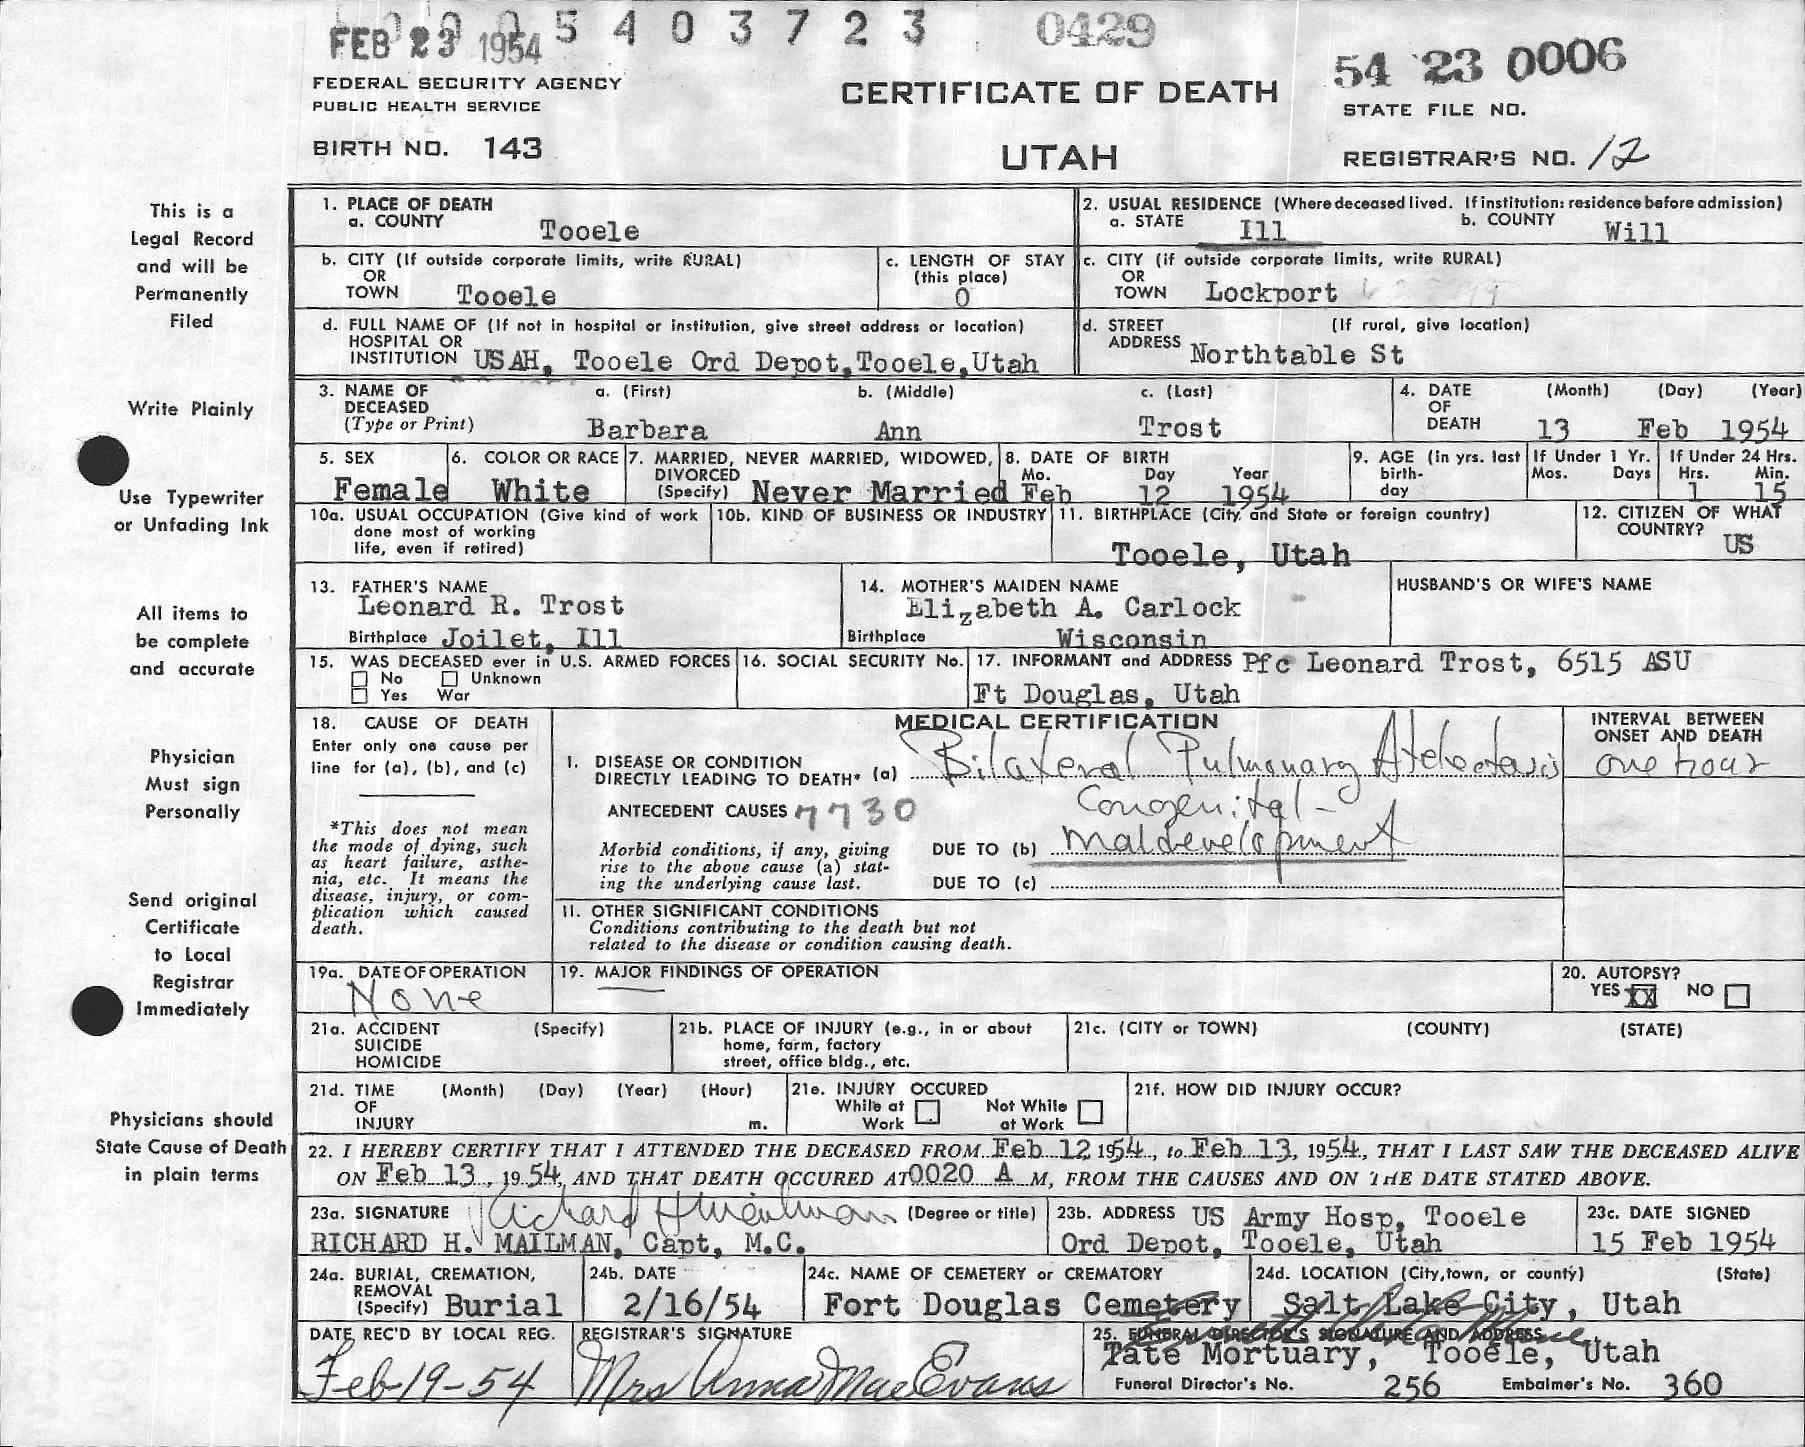 0005403723 0429
FEB 23 1954
54 23 0006
FEDERAL SECURITY AGENCY
PUBLIC HEALTH SERVICE
CERTIFICATE OF DEATH
STATE FILE NO.
BIRTH NO. 143
UTAH
REGISTRAR'S NO. 12
This is a
Legal Record
and will be
Permanently
Filed
Write Plainly
Use Typewriter
or Unfading Ink
All items to
be complete
and accurate
Physician
Must sign
Personally
Send original
Certificate
to Local
Registrar
Immediately
Physicians should
State Cause of Death
in plain terms
1. PLACE OF DEATH
a. COUNTY Tooele
2. USUAL RESIDENCE (Where deceased lived. If institution: residence before admission)
a. STATE Ill b. COUNTY Will
b. CITY (If outside corporate limits, write RURAL)
OR
TOWN Tooele
c. LENGTH OF STAY
(this place)
0
c. CITY (if outside corporate limits, write RURAL)
OR
TOWN Lockport
d. FULL NAME OF (If not in hospital or institution, give street address or location)
HOSPITAL OR
INSTITUTION USAH, Tooele Ord Depot, Tooele, Utah
d. STREET (If rural, give location)
ADDRESS Northtable St
3. NAME OF a. (First) b. (Middle) c. (Last)
DECEASED
(Type or Print) Barbara Ann Trost
4. DATE (Month) (Day) (Year)
OF
DEATH 13 Feb 1954
5. SEX
Female
6. COLOR OR RACE
White
7. MARRIED, NEVER MARRIED, WIDOWED,
DIVORCED
(Specify) Never Married
8. DATE OF BIRTH
Mo. Day Year
Feb 12 1954
9. AGE (in yrs. last
birth-
day
If Under 1 Yr.
Mos. Days
If Under 24 Hrs.
Hrs. Min.
1 15
10a. USUAL OCCUPATION (Give kind of work
done most of working
life, even if retired)
10b. KIND OF BUSINESS OR INDUSTRY
11. BIRTHPLACE (City, and State or foreign country)
Tooele, Utah
12. CITIZEN OF WHAT
COUNTRY?
US
13. FATHER'S NAME
Leonard R. Trost
Birthplace Joilet, Ill
14. MOTHER'S MAIDEN NAME
Elizabeth A. Carlock
Birthplace Wisconsin
HUSBAND'S OR WIFE'S NAME
15. WAS DECEASED ever in U.S. ARMED FORCES
No Unknown
Yes War
16. SOCIAL SECURITY No.
17. INFORMANT and ADDRESS Pfc Leonard Trost, 6515 ASU
Ft Douglas, Utah
18. CAUSE OF DEATH
Enter only one cause per
line for (a), (b), and (c)
*This does not mean
the mode of dying, such
as heart failure, asthe-
nia, etc. It means the
disease, injury, or com-
plication which caused
death.
MEDICAL CERTIFICATION
I. DISEASE OR CONDITION
DIRECTLY LEADING TO DEATH* (a) Bilateral Pulmonary Atelectasis
ANTECEDENT CAUSES 7730
Congenital-
Morbid conditions, if any, giving
rise to the above cause (a) stat-
ing the underlying cause last.
DUE TO (b) maldevelopment
DUE TO (c)
II. OTHER SIGNIFICANT CONDITIONS
Conditions contributing to the death but not
related to the disease or condition causing death.
INTERVAL BETWEEN
ONSET AND DEATH
one hour
19a. DATE OF OPERATION
None
19. MAJOR FINDINGS OF OPERATION
20. AUTOPSY?
YES XX NO
21a. ACCIDENT (Specify)
SUICIDE
HOMICIDE
21b. PLACE OF INJURY (e.g., in or about
home, farm, factory
street, office bldg., etc.
21c. (CITY or TOWN) (COUNTY) (STATE)
21d. TIME (Month) (Day) (Year) (Hour)
OF
INJURY m.
21e. INJURY OCCURED
While at Not While
Work at Work
21f. HOW DID INJURY OCCUR?
22. I HEREBY CERTIFY THAT I ATTENDED THE DECEASED FROM Feb 12 1954, to Feb 13, 1954, THAT I LAST SAW THE DECEASED ALIVE
ON Feb 13, 1954, AND THAT DEATH OCCURED AT 0020 A M, FROM THE CAUSES AND ON THE DATE STATED ABOVE.
23a. SIGNATURE Richard H Mailman (Degree or title)
RICHARD H. MAILMAN, Capt, M.C.
23b. ADDRESS US Army Hosp, Tooele
Ord Depot, Tooele, Utah
23c. DATE SIGNED
15 Feb 1954
24a. BURIAL, CREMATION,
REMOVAL
(Specify) Burial
24b. DATE
2/16/54
24c. NAME OF CEMETERY or CREMATORY
Fort Douglas Cemetery
24d. LOCATION (City, town, or county) (State)
Salt Lake City, Utah
DATE REC'D BY LOCAL REG.
Feb-19-54
REGISTRAR'S SIGNATURE
Mrs Anna Mae Evans
25. FUNERAL DIRECTOR'S SIGNATURE AND ADDRESS
Tate Mortuary, Tooele, Utah
Funeral Director's No. 256 Embalmer's No. 360